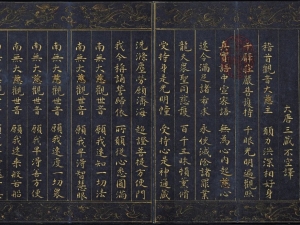 大唐三藏不空譯
稽首觀音大悲主 願力洪深相好身
千臂莊嚴普護持 千眼光明遍觀照
真實語中宣密語 無為心內起悲心
速令滿足諸希求 永使滅除諸罪業
龍天眾聖同慈護 百千三昧頓熏修
受持身是光明幢 受持心是神通藏
洗滌塵勞願濟海 超證菩提方便門
我今稱誦誓歸依 所願從心悉圓滿
南無大悲觀世音 願我速知一切法
南無大悲觀世音 願我早得智慧眼
南無大悲觀世音 願我速度一切眾
南無大悲觀世音 願我早得善方便
南無大悲觀世音 願我速乘般若船